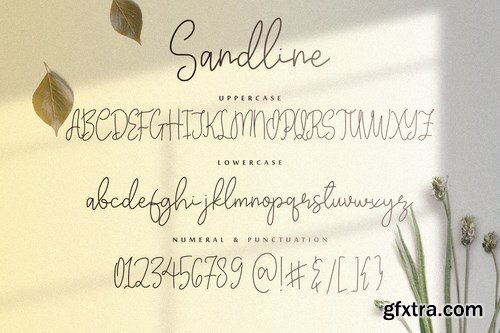 Sandline
UPPERCASE
ABCDEFGHIJKLMNOPQRSTUVWXYZ
LOWERCASE
abcdefghijklmnopqrstuvwxyz
NUMERAL & PUNCTUATION
0123456789 @!#&/[]{}
gfxtra.com